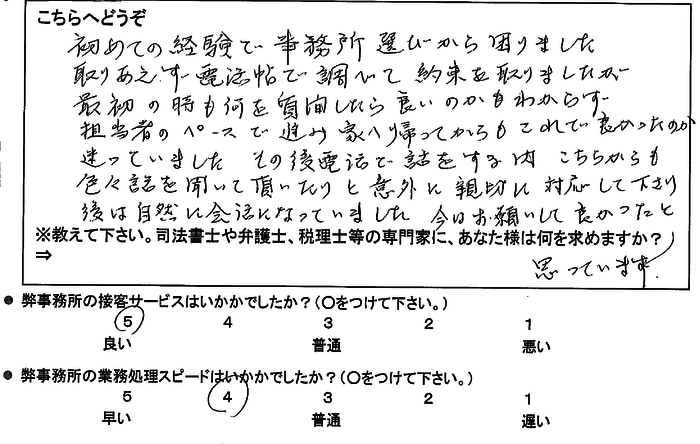 こちらへどうぞ
初めての経験で事務所選びから困りました
取りあえず電話帖で調べて約束を取りましたが
最初の時も何を質問したら良いのかもわからず
担当者のペースで進み家へ帰ってからもこれで良かったのか
迷っていました その後電話で話をする内 こちらからも
色々話を聞いて頂いたりと意外に親切に対応して下さり
後は自然に会話になっていました 今はお願いして良かったと
※教えて下さい。司法書士や弁護士、税理士等の専門家に、あなた様は何を求めますか?
⇒
思っています。
● 弊事務所の接客サービスはいかかでしたか?(〇をつけて下さい。)
5 4 3 2 1
良い 普通 悪い
● 弊事務所の業務処理スピードはいかかでしたか?(〇をつけて下さい。)
5 4 3 2 1
早い 普通 遅い